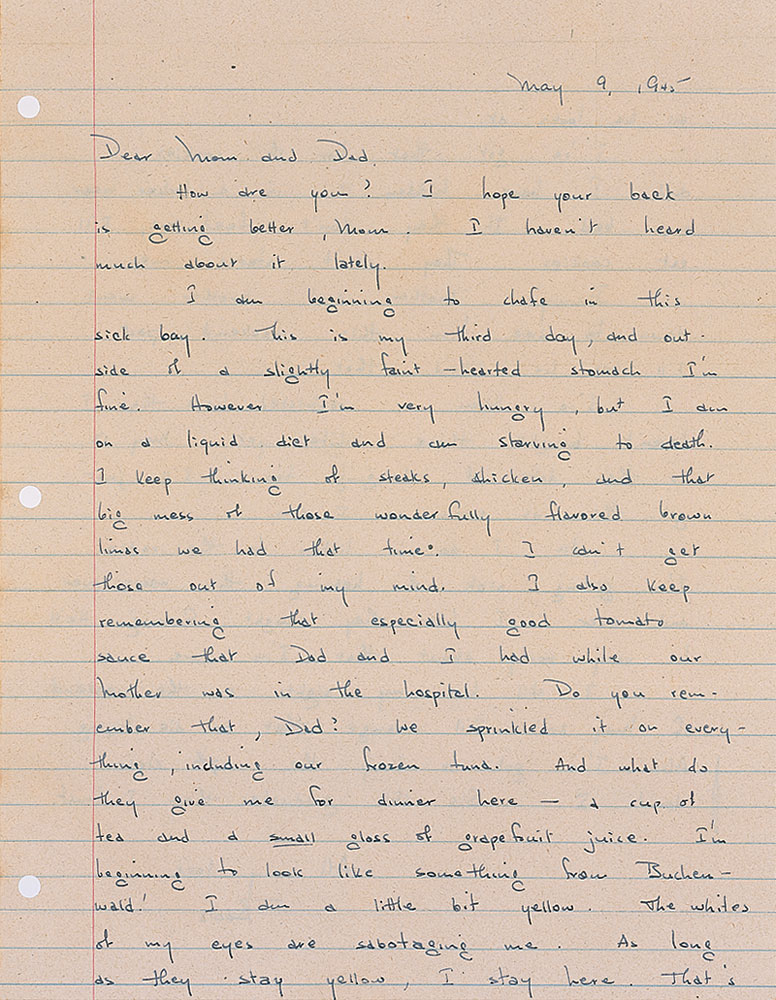 May 9, 1945
Dear Mom and Dad,
How are you? I hope your back
is getting better, Mom. I haven't heard
much about it lately.
I am beginning to chafe in this
sick bay. This is my third day, and out-
side of a slightly faint-hearted stomach I'm
fine. However I'm very hungry, but I am
on a liquid diet and am starving to death.
I keep thinking of steaks, chicken, and that
big mess of those wonderfully flavored brown
limas we had that time. I can't get
those out of my mind. I also keep
remembering that especially good tomato
sauce that Dad and I had while our
Mother was in the hospital. Do you rem-
ember that, Dad? We sprinkled it on every-
thing, including our frozen tuna. And what do
they give me for dinner here — a cup of
tea and a small glass of grapefruit juice. I'm
beginning to look like something from Buchen-
wald! I am a little bit yellow. The whites
of my eyes are sabotaging me. As long
as they stay yellow, I stay here. That's